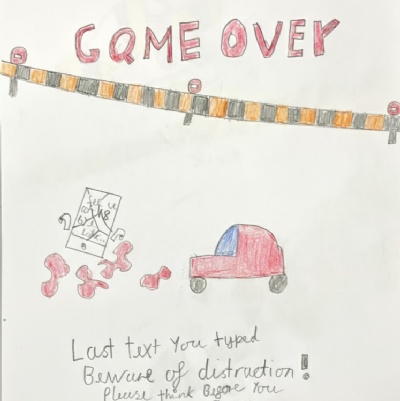 GAME OVER
Last text You typed
Beware of distraction!
Please think Before You